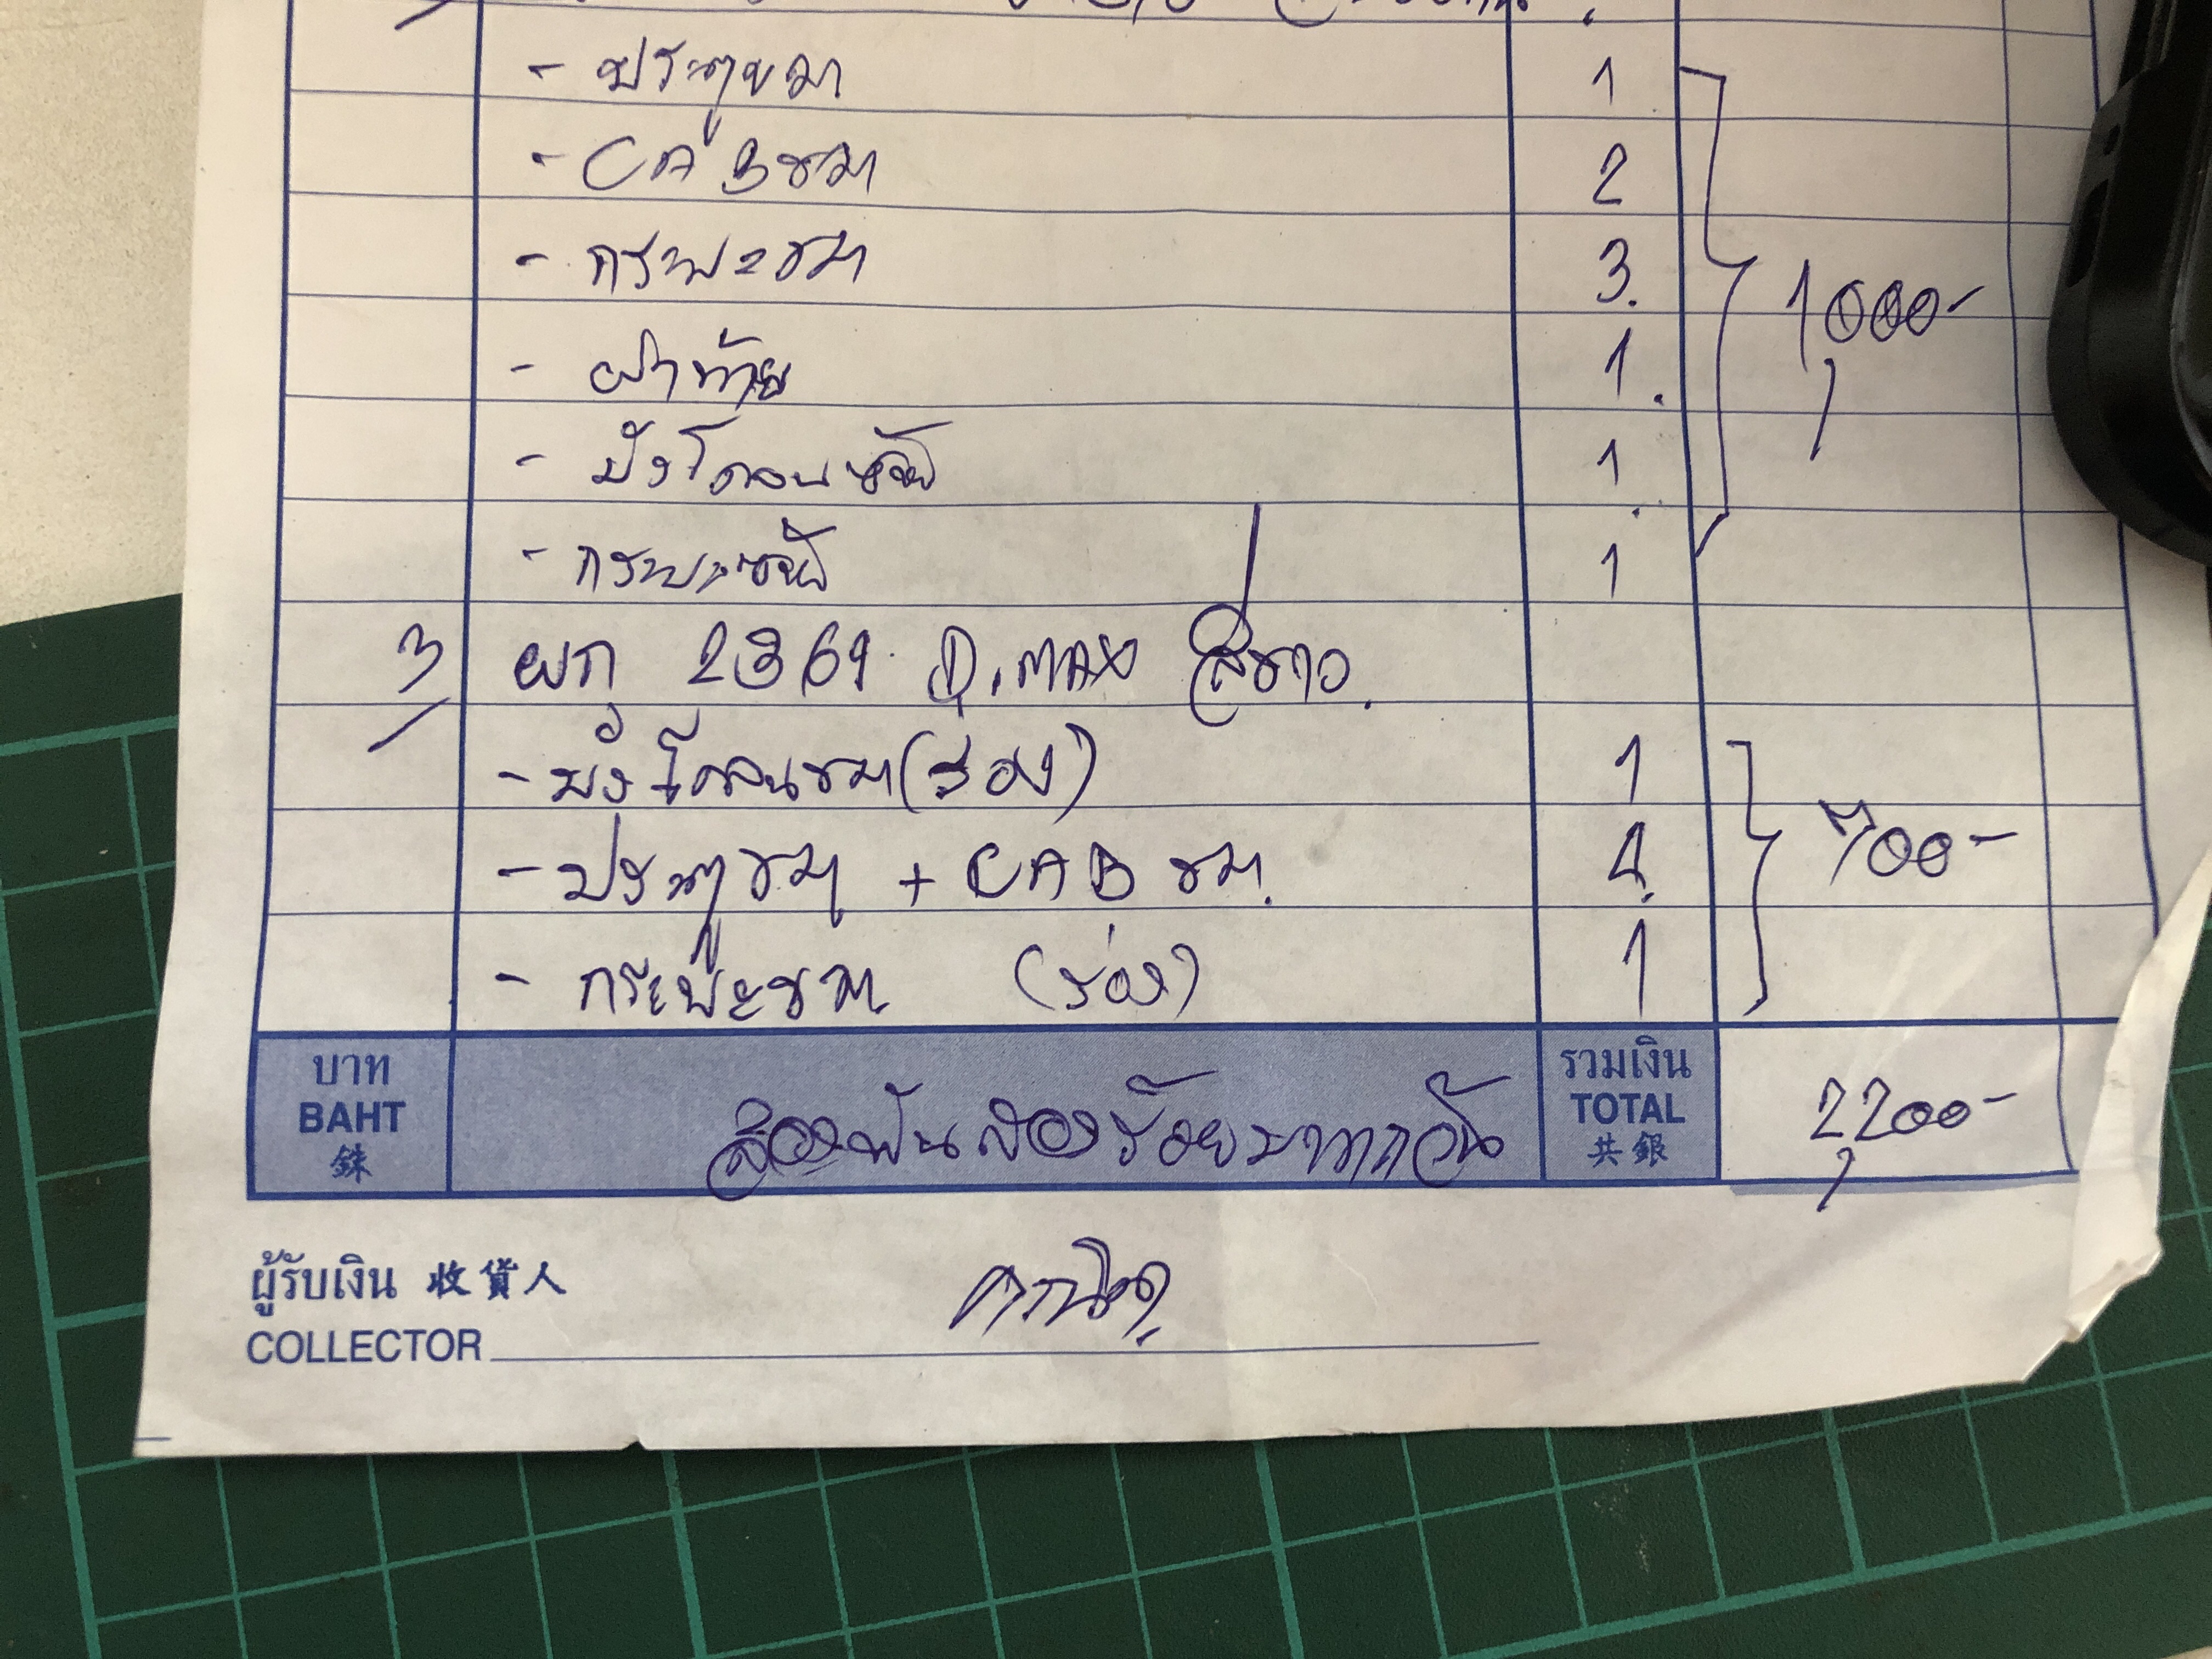 - ประตูขวา 1
- CAB ขวา 2
- กระบะขวา 3. 1000-
- ฝาท้าย 1.
- บังโคลนซ้าย 1
- กระบะซ้าย 1
3 ผก 2369 D.MAX สีขาว.
- บังโคลนขวา (รอง) 1
- ประตูขวา + CAB ขวา. 4. 700-
- กระบะขวา (ร่อง) 1
บาท
BAHT
銖
สองพันสองร้อยบาทถ้วน
รวมเงิน
TOTAL
共銀
2,200-
ผู้รับเงิน 收貨人
COLLECTOR